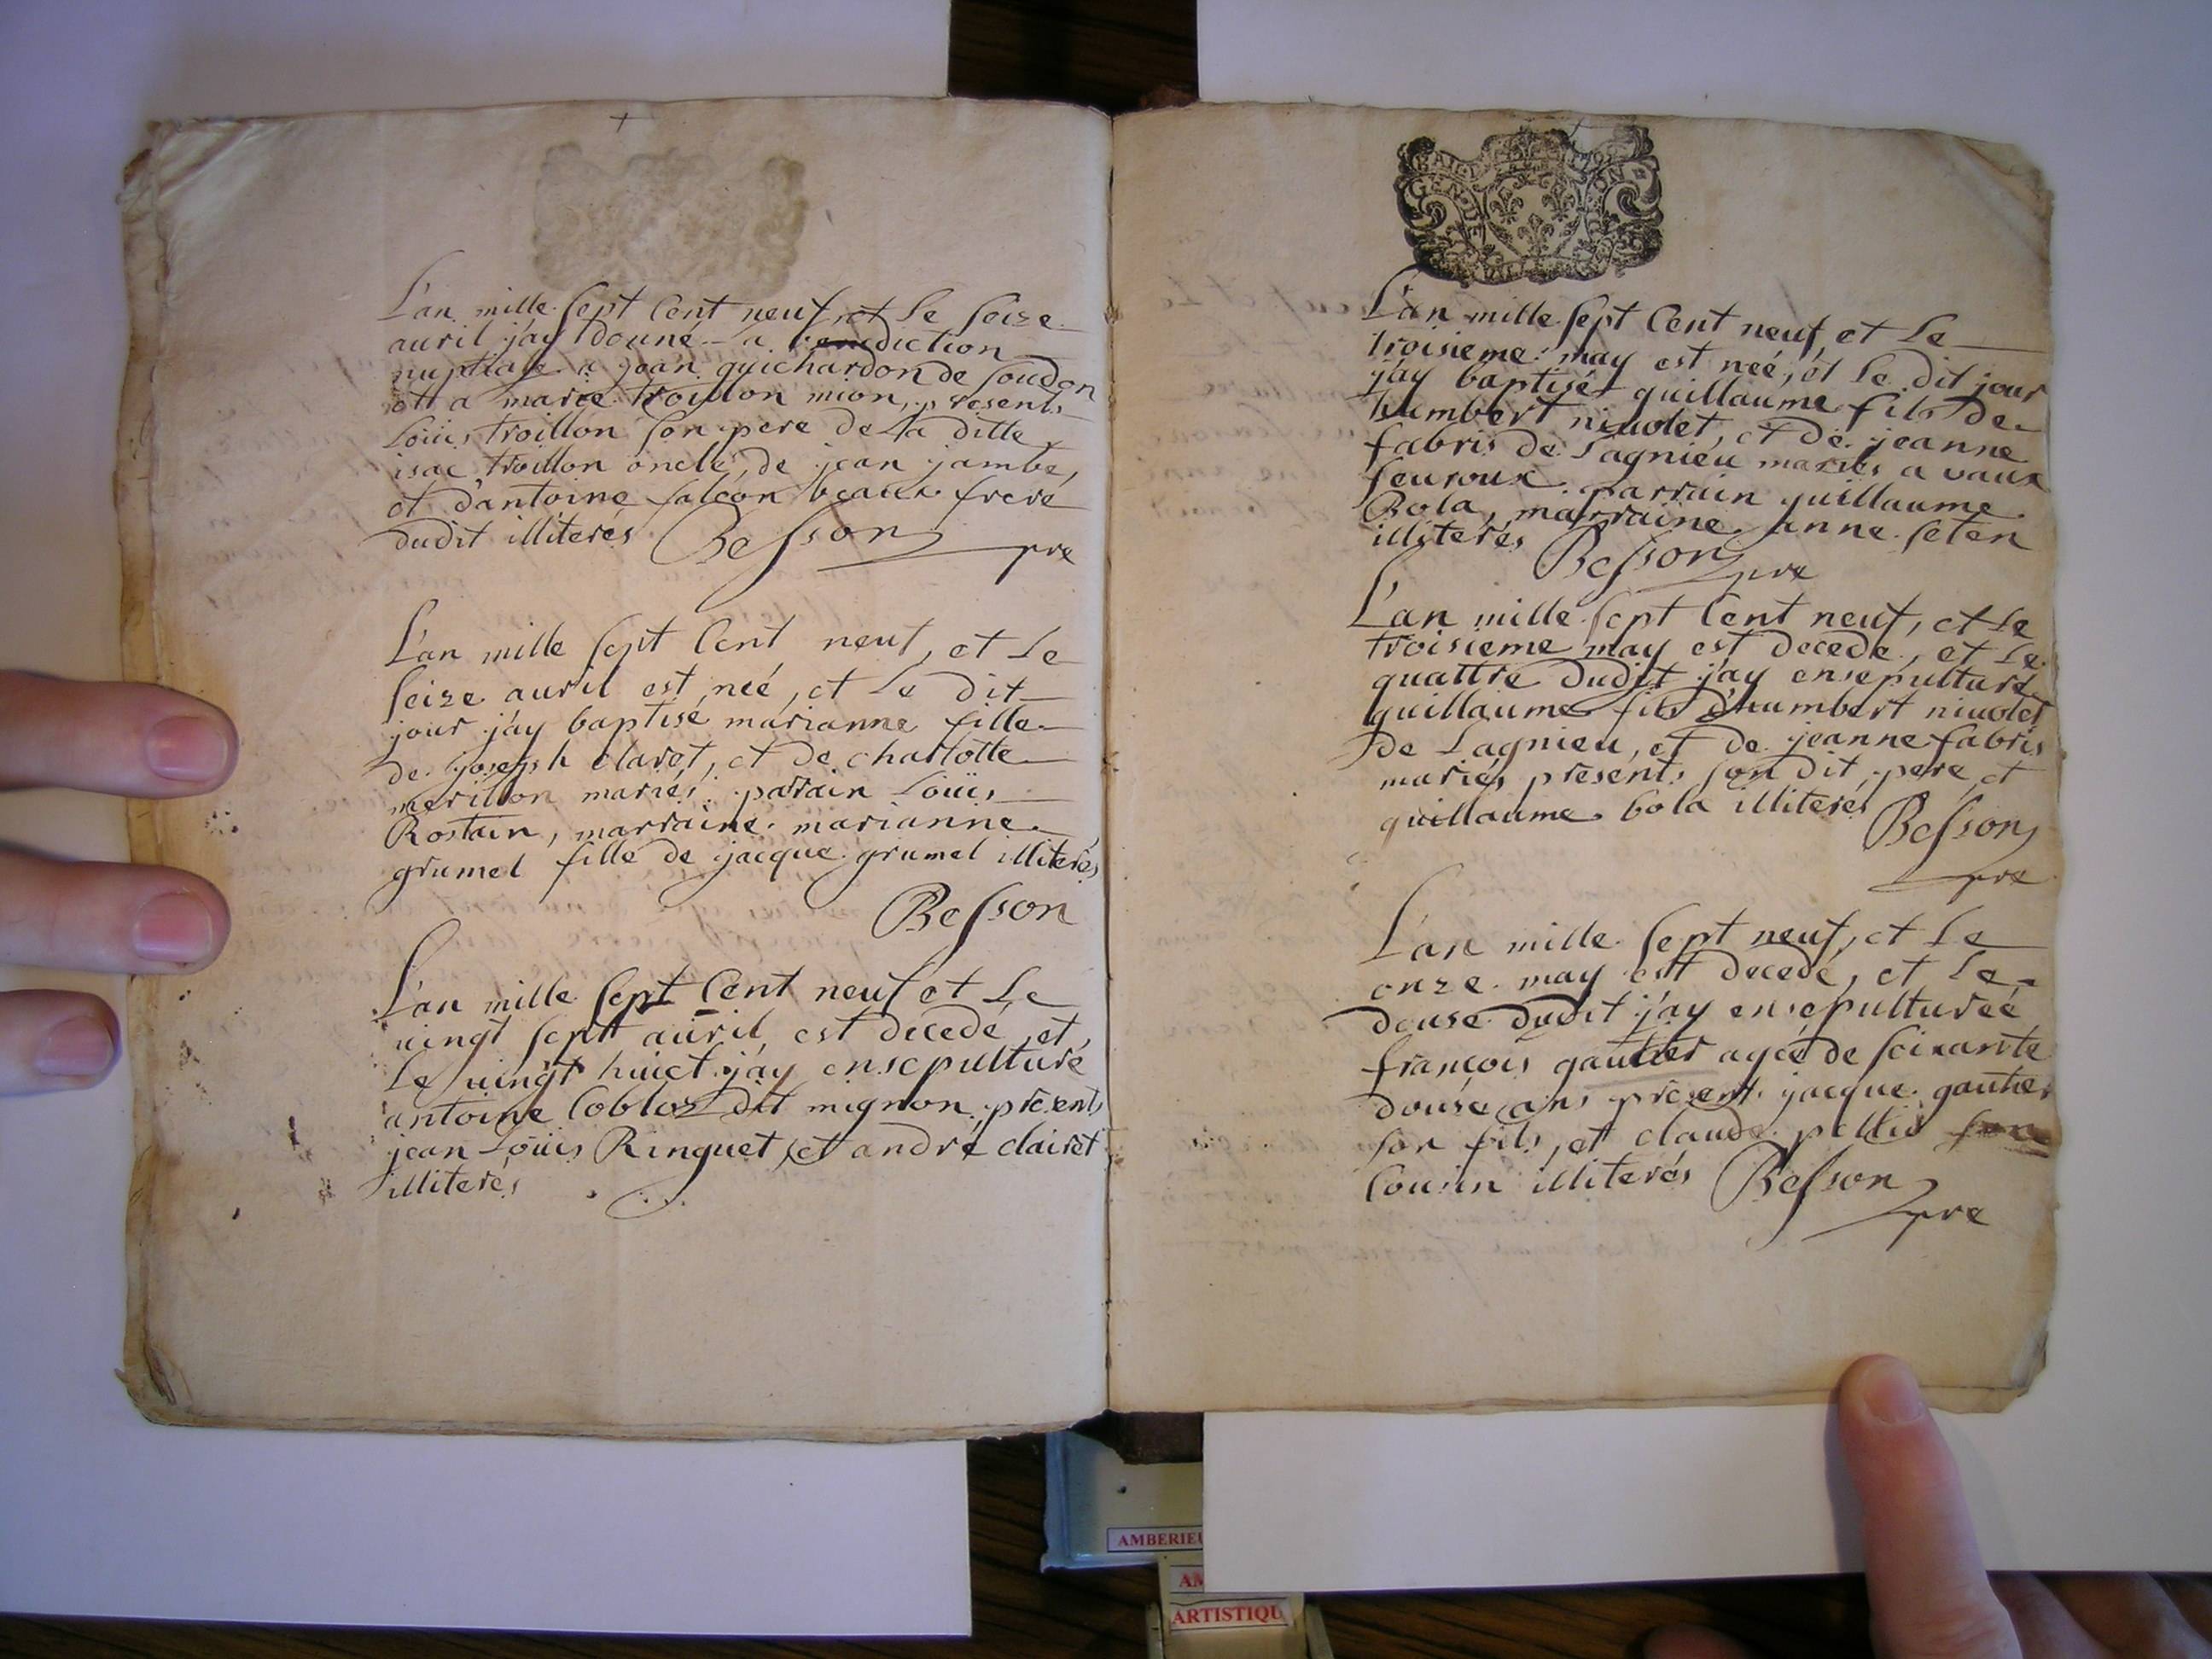 L'an mille sept Cent neuf, et le seize
auril j'ay donné la benediction
nuptiale a jean guichardon de soudon
et a marie troillon mion, presents
Loüis troillon son pere de la ditte
isac troillon oncle, de jean jambe,
et d'antoine falcon beaux frere
dudit illiterés Besson
pre
L'an mille sept Cent neuf, et le
seize auril est neé, et le dit
jour j'ay baptisé marianne fille
de joseph claret, et de charlotte
merillon mariés parrain Loüis
Rostain, marraine marianne
grumel fille de jacque grumel illiterés
Besson
L'an mille sept Cent neuf et le
uingt sept auril est decedé, et
le uingt huict j'ay ensepulturé
antoine Cobloz dit mignon presents
jean Loüis Ringuet, et andré clairet
illiterés
GEN
L'an mille sept Cent neuf, et le
troisieme may est neé, et le dit jour
j'ay baptisé guillaume fils de
humbert niuolet, et de jeanne
fabris de Lagnieu mariés a vaux
feuroux parrain guillaume
Bola, marraine anne seten
illiterés Besson
pre
L'an mille sept Cent neuf, et le
troisieme may est decede, et le
quattre dudit j'ay ensepulturé
guillaume fils d'humbert niuolet
de Lagnieu, et de jeanne fabris
mariés presents son dit pere, et
guillaume bola illiterés Besson
pre
L'an mille sept neuf, et le
onze may est decedé, et le
douse dudit j'ay ensepultureé
françois gautier agée de soixante
douse ans present jacque gautier
son fils, et claude pellii
Cousin illiterés Besson
pre
AMBERIEU
AM
ARTISTIQU